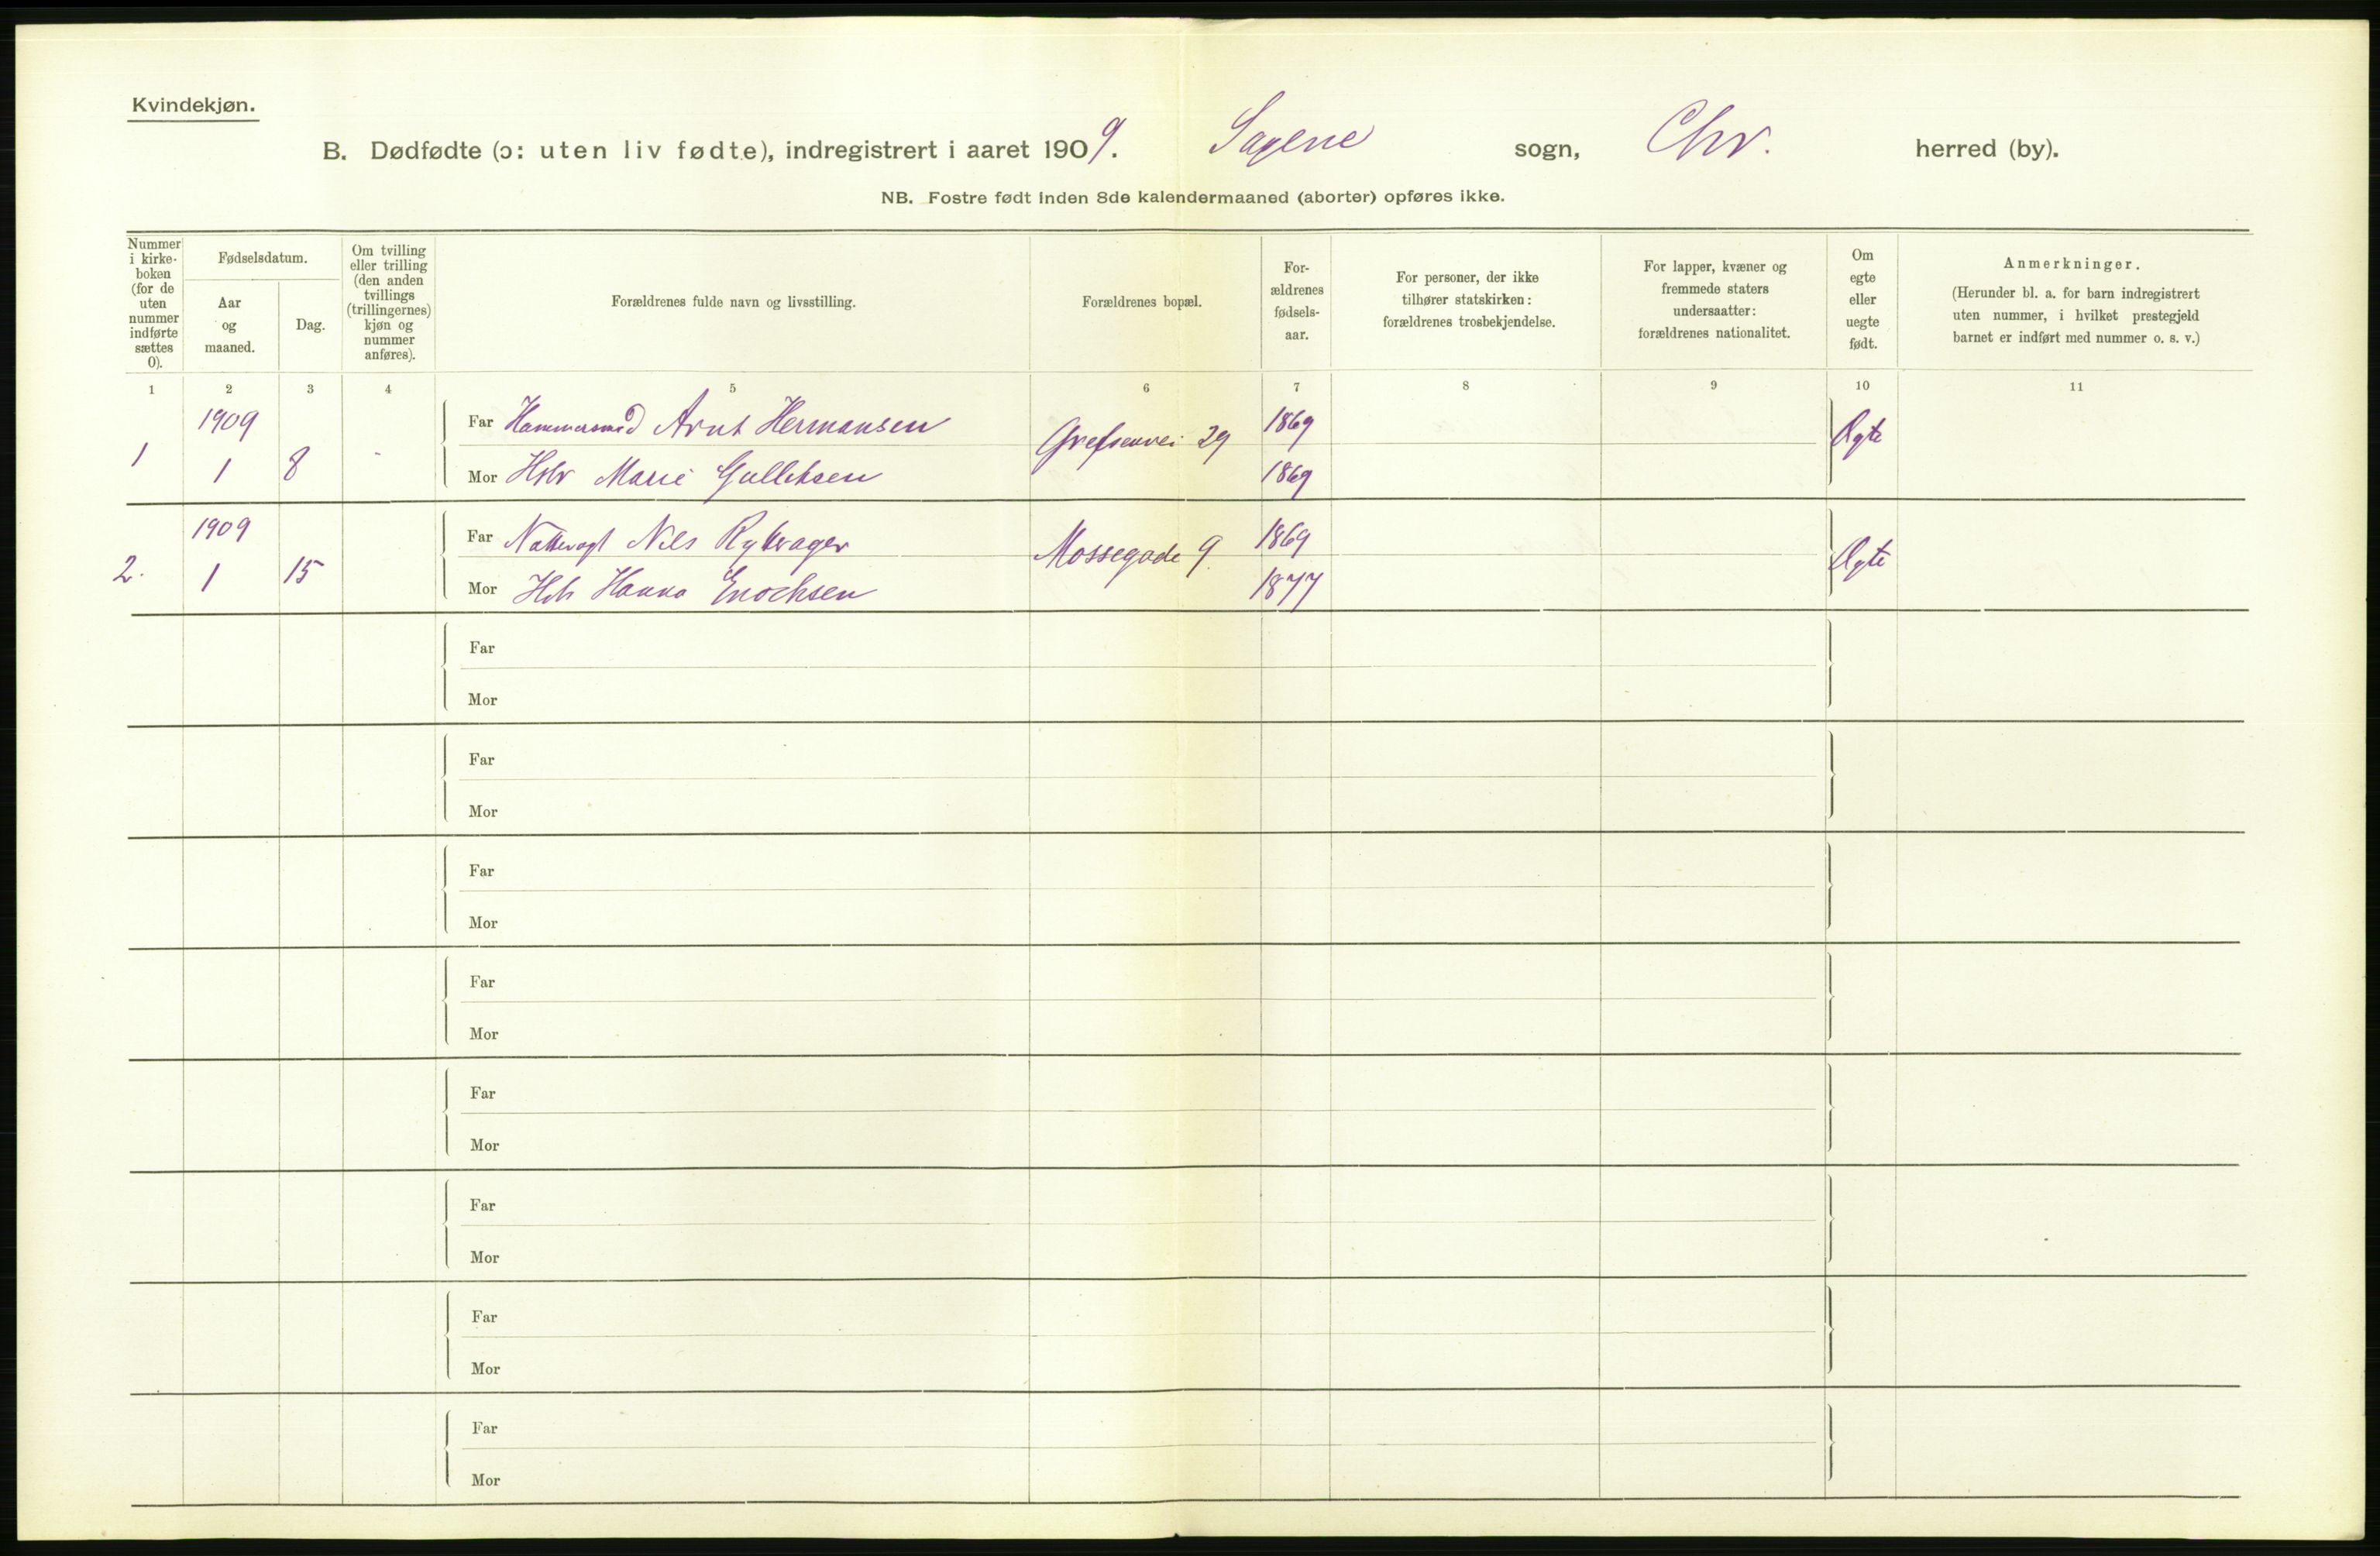 Kvindekjøn.
B. Dødfødte (ɔ: uten liv fødte), indregistrert i aaret 1909. Sagene sogn, Chr. herred (by).
NB. Fostre født inden 8de kalendermaaned (aborter) opføres ikke.
Nummer
i kirke-
boken
(for de
uten
nummer
indførte
sættes
0).
Fødselsdatum.
Aar
og
maaned.
Dag.
Om tvilling
eller trilling
(den anden
tvillings
(trillingernes)
kjøn og
nummer
anføres).
Forældrenes fulde navn og livsstilling.
Forældrenes bopæl.
For-
ældrenes
fødsels-
aar.
For personer, der ikke
tilhører statskirken:
forældrenes trosbekjendelse.
For lapper, kvæner og
fremmede staters
undersaatter:
forældrenes nationalitet.
Om
egte
eller
uegte
født.
Anmerkninger.
(Herunder bl. a. for barn indregistrert
uten nummer, i hvilket prestegjeld
barnet er indført med nummer o. s. v.)
1 2 3 4 5 6 7 8 9 10 11
1909 Far Hammersmed Arnt Hermansen 1869
1 1 8 - Grefsenvei 29 Ægte
Mor Hstr Marie Gulliksen 1869
1909 Far Nattevagt Nils Rytterager 1869
2. 1 15 Mossegade 9. Ægte
Mor Hstr Hanna Enochsen 1877
Far
Mor
Far
Mor
Far
Mor
Far
Mor
Far
Mor
Far
Mor
Far
Mor
Far
Mor